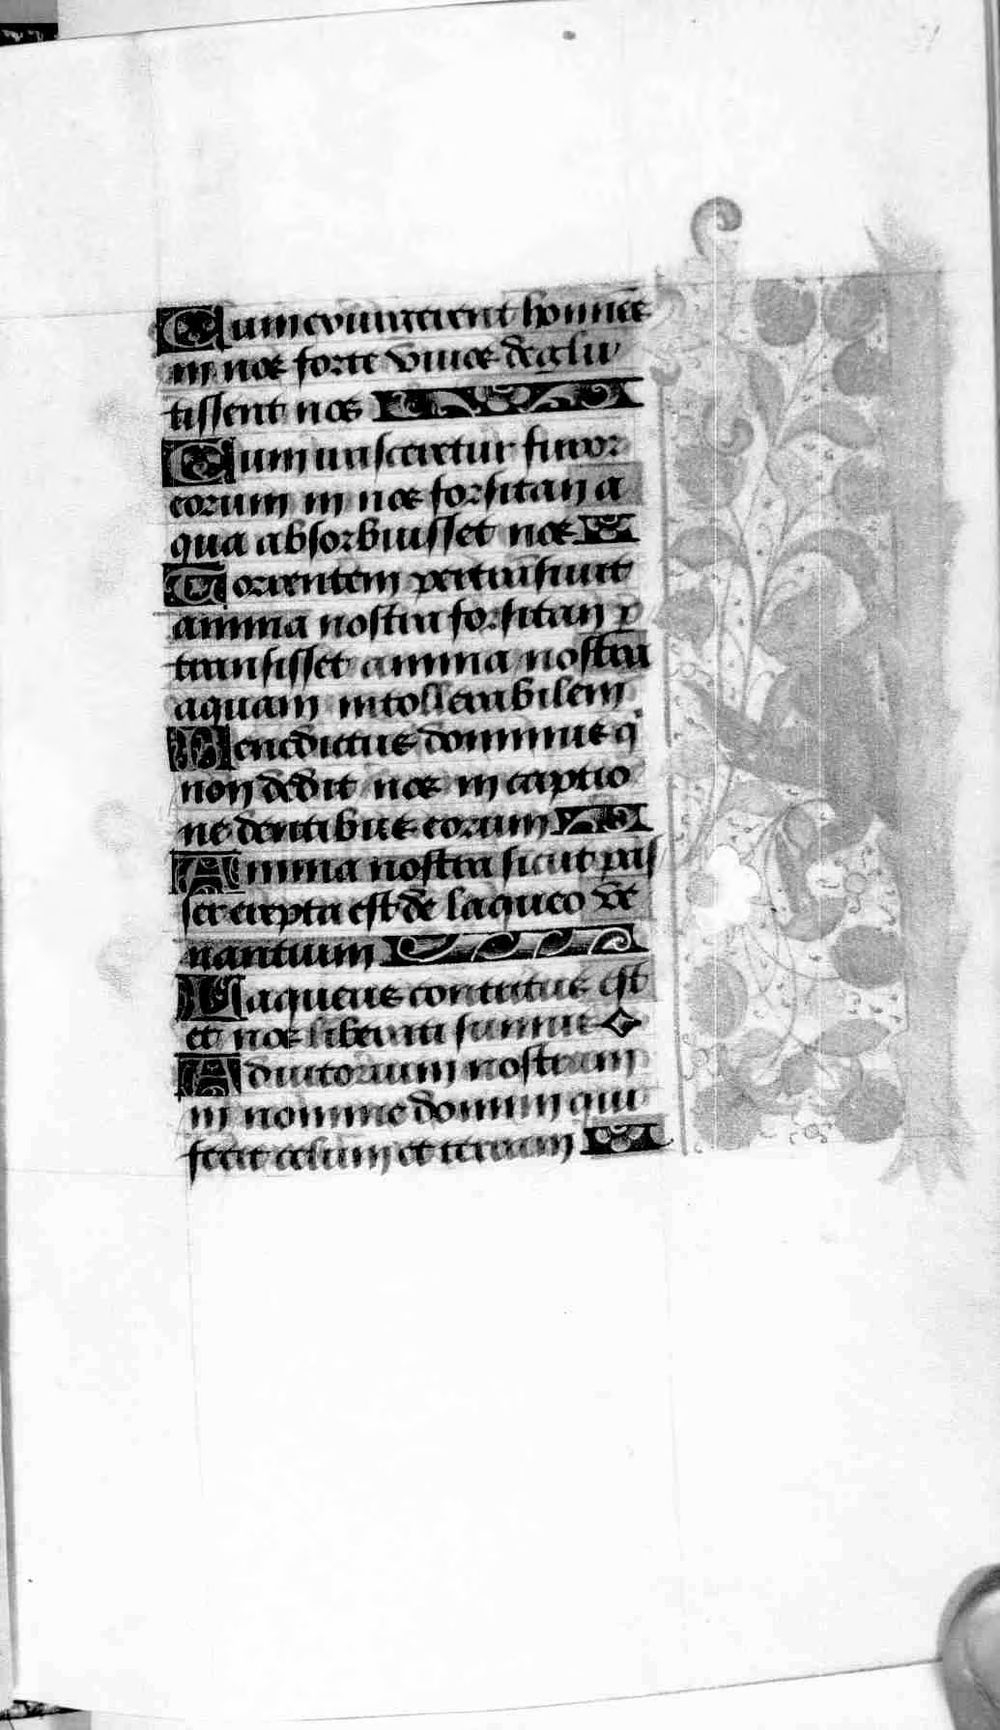 Cum exurgerent homines
in nos forte vivos deglu
tissent nos
Cum irasceretur furor
eorum in nos forsitan a
qua absorbuisset nos
Torrentem pertransivit
anima nostra forsitan p
transisset anima nostra
aquam intollerabilem
Benedictus dominus q
non dedit nos in captio
ne dentibus eorum
Anima nostra sicut pas
ser erepta est de laqueo ve
nantium
Laqueus contritus est
et nos liberati sumus
Adiutorium nostrum
in nomine domini qui
fecit celum et terram